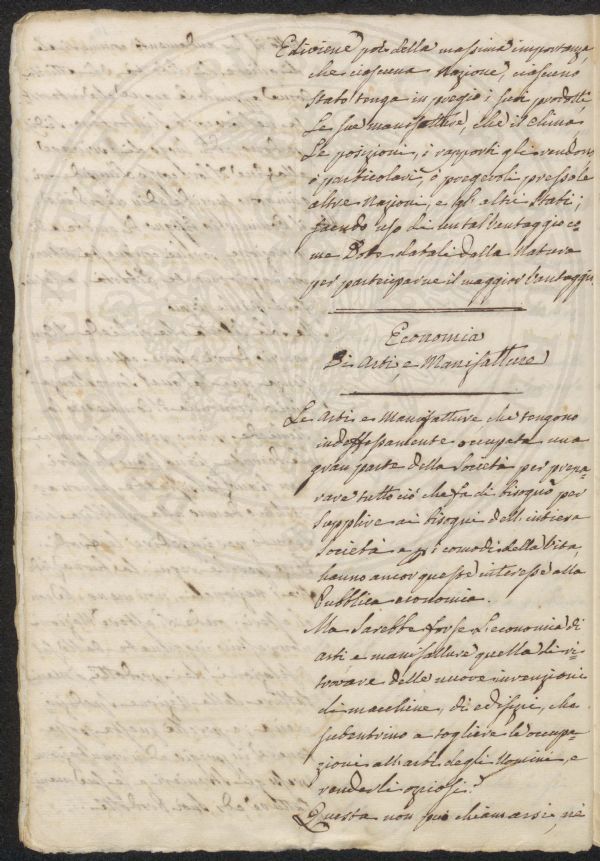 E diviene poi della massima importanza,
che ciascuna Nazione, ciascuno
Stato tenga in pregio i suoi prodotti
Le sue manifatture, che il clima
Le posizioni, i rapporti gli rendono
o particolari, o pregevoli presso le
altre Nazioni, e gl'altri Stati;
facendo uso di un tal vantaggio co=
me Dote datali dalla Natura
per participarne il maggior vantaggio.
Economia
Di Arti, e Manifatture
Le Arti e Manifatture che tengono
indeffessamente occupata una
gran parte della Società per prepa=
rare tutto ciò che fa di bisogno per
supplire ai bisogni dell'intiera
Società e pei comodi della Vita,
hanno ancor queste interesse alla
Pubblica economia.
Ma sarebbe forse L'economia di
arti e manifatture quella di ri=
trovare delle nuove invenzioni
di macchine, di edifizi, che
subentrino a togliere le occupa=
zioni all'arti degli Uomini, e
renderli oziosi?
Questa non può chiamarsi, nè